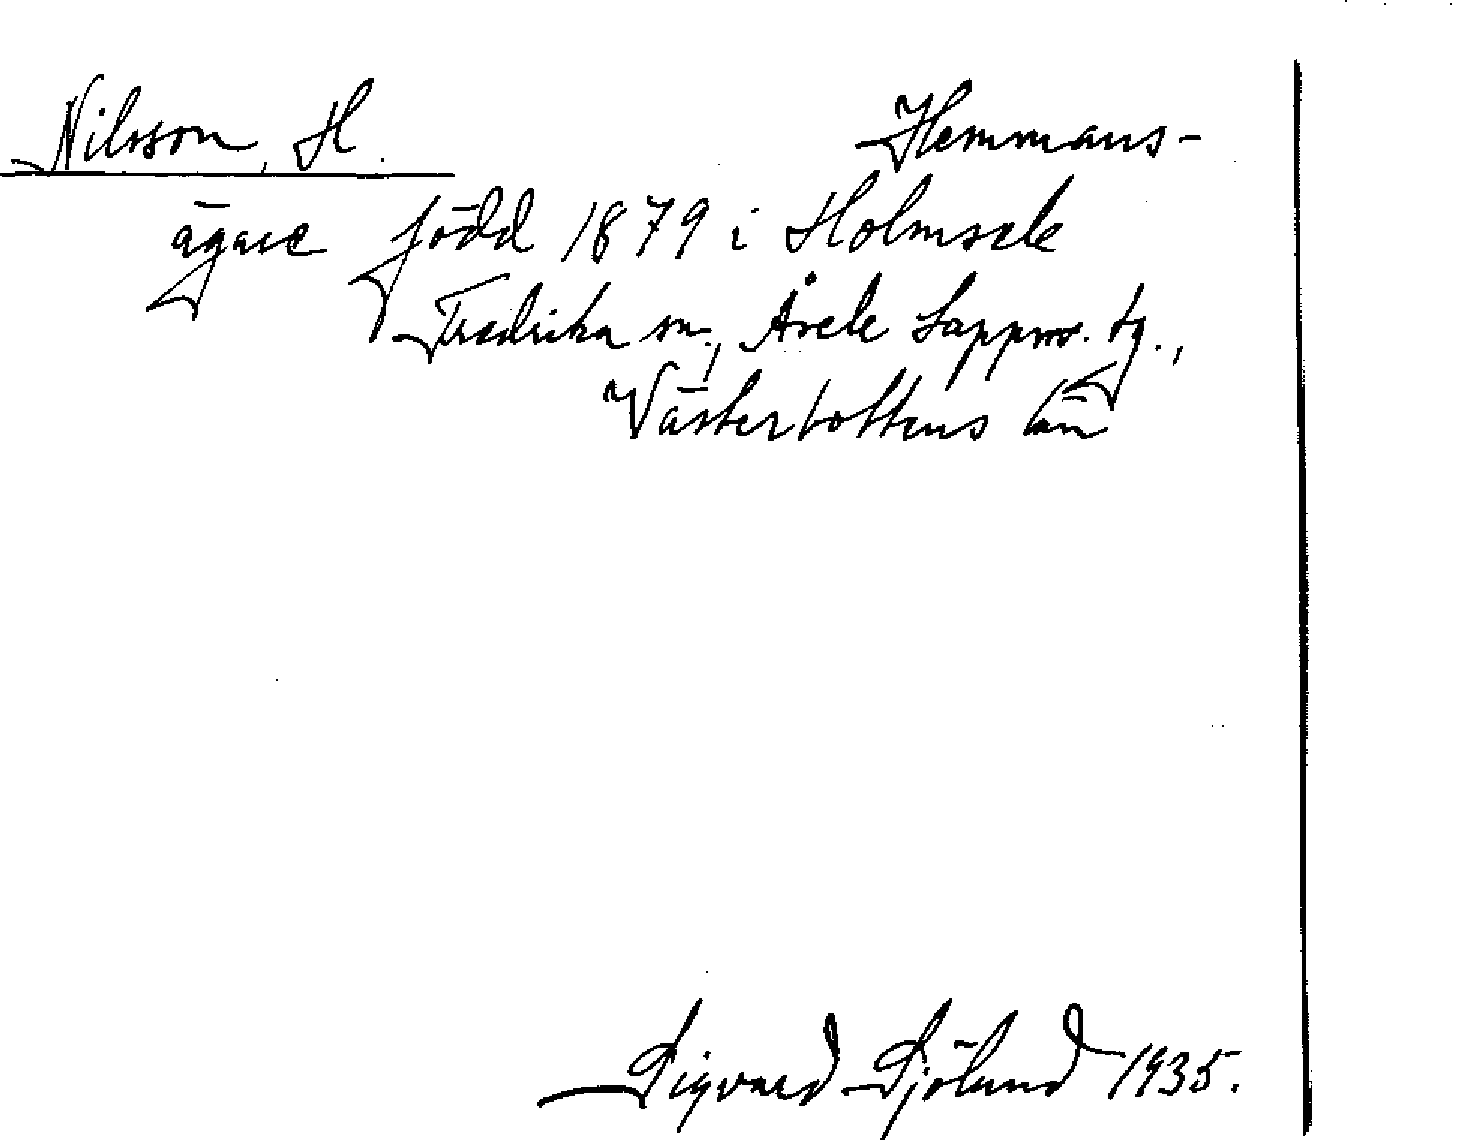 Nilsson, H. Hemmans-
ägare född 1879 i Holmsele
Fredrika sn., Åsele Lappm. tg.,
Västerbottens län
Sigvard Sjölund 1935.